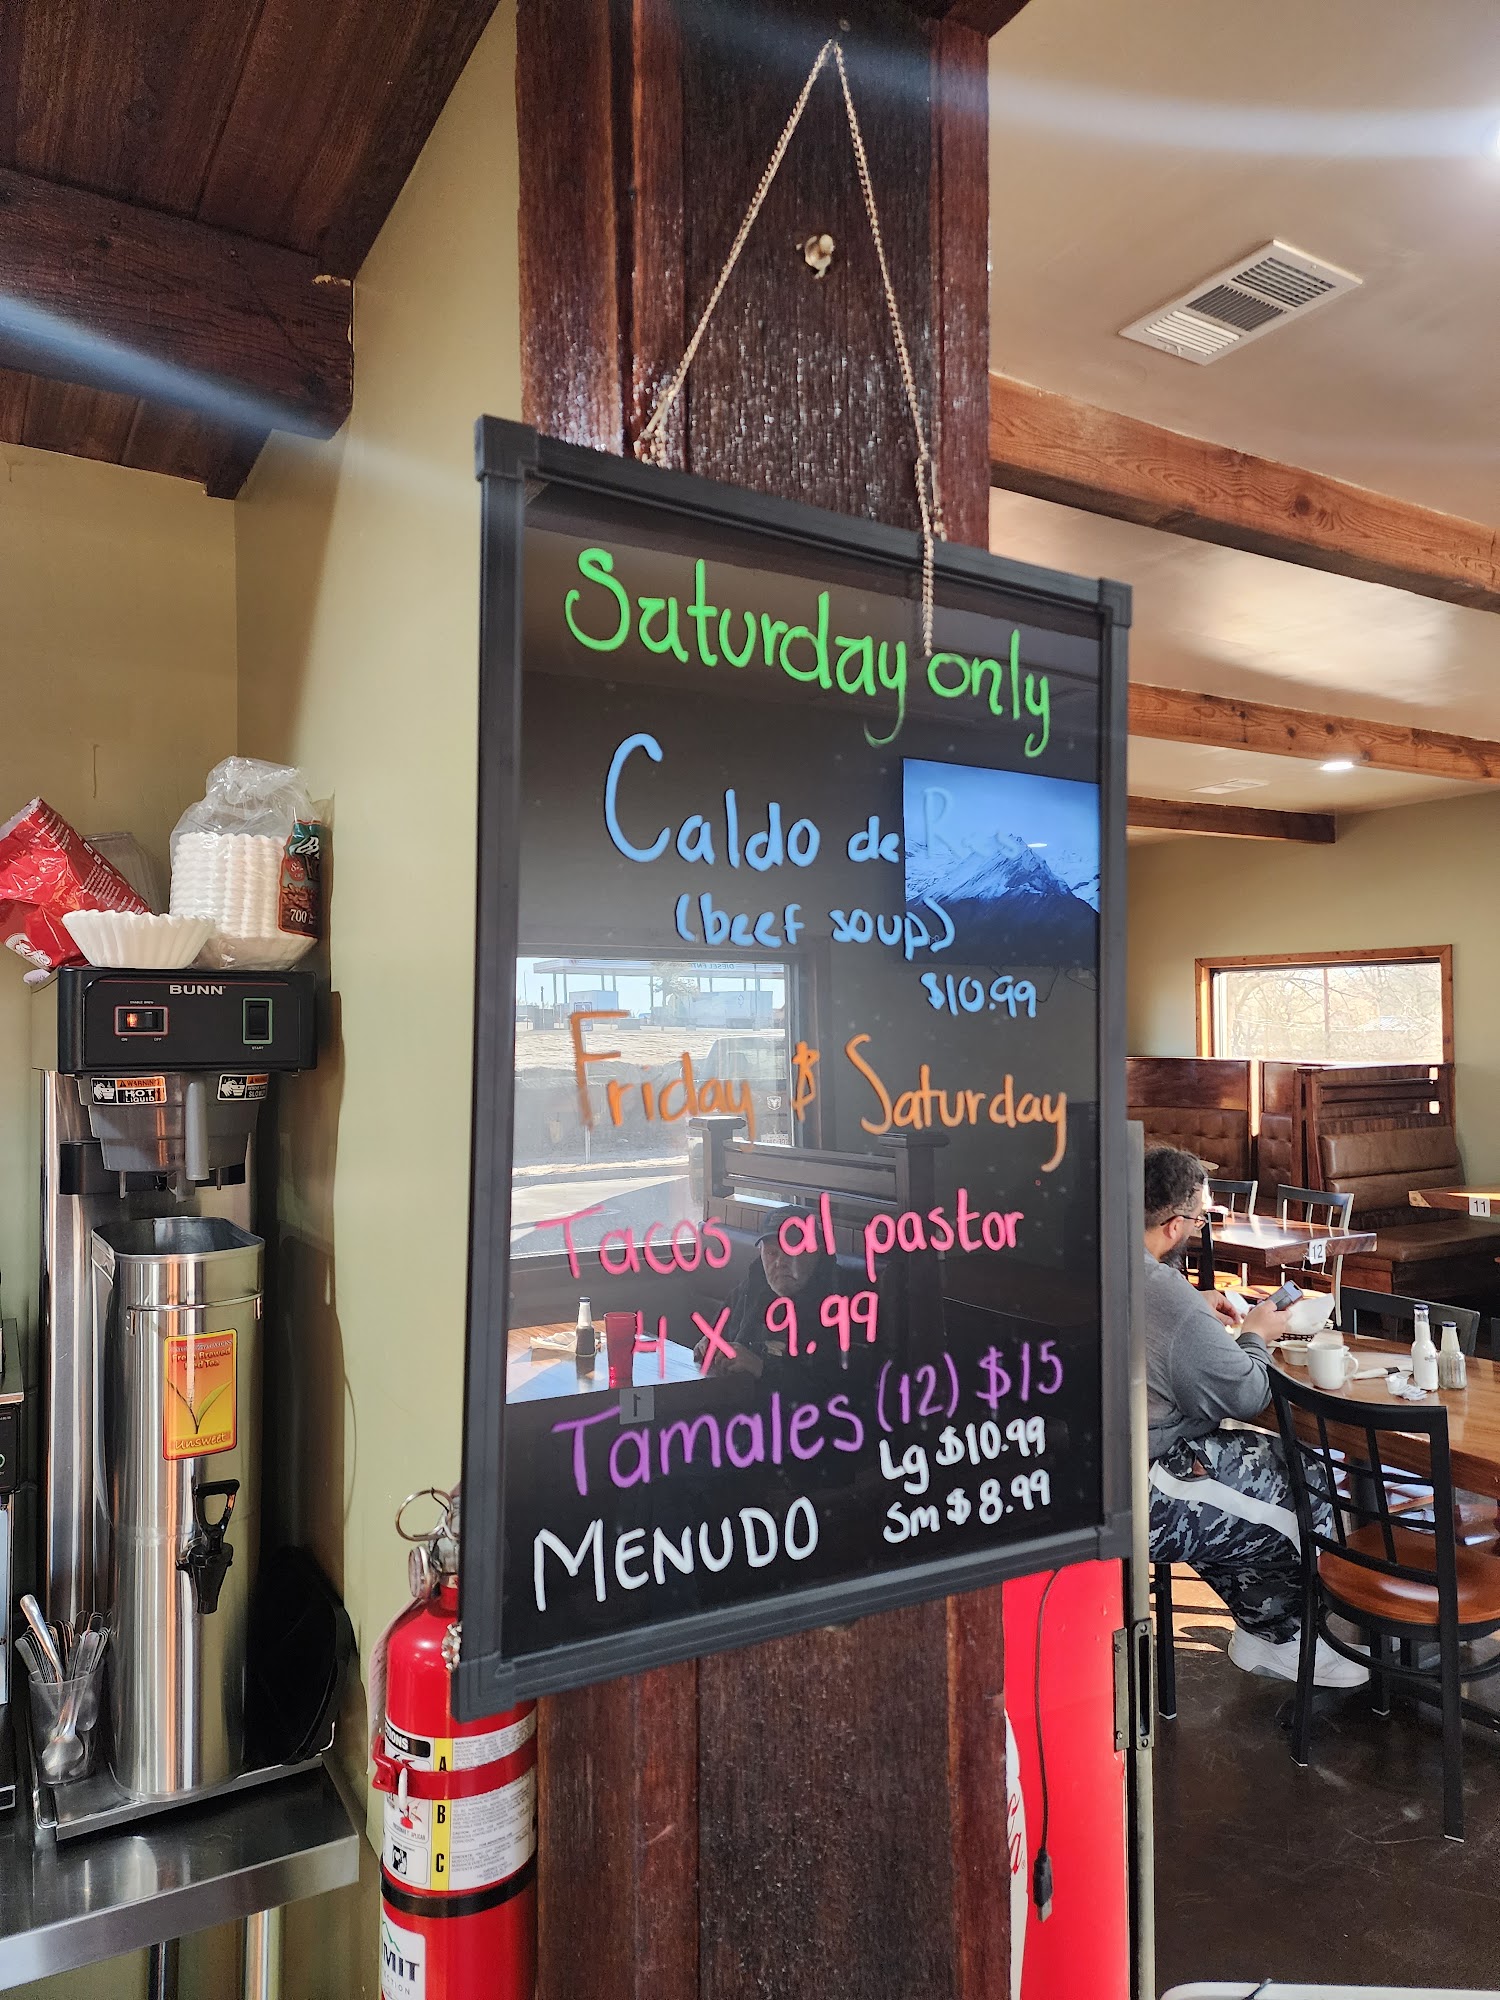 Saturday only
Caldo de Res
(beef soup)
$10.99
Friday & Saturday
Tacos al pastor
4 X 9.99
Tamales (12) $15
MENUDO
Lg $10.99
Sm $8.99
BUNN
ON
OFF
START
WARNING
HOT
LIQUID
Fresh Brewed
Iced Tea
unsweet
700
A
B
C
12
11